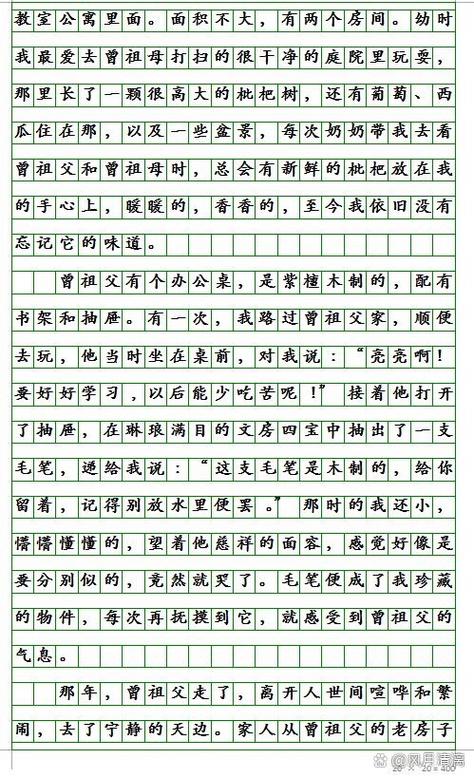 教室公寓里面。面积不大，有两个房间。幼时
我最爱去曾祖母打扫的很干净的庭院里玩耍，
那里长了一颗很高大的枇杷树，还有葡萄、西
瓜住在那，以及一些盆景，每次奶奶带我去看
曾祖父和曾祖母时，总会有新鲜的枇杷放在我
的手心上，暖暖的，香香的，至今我依旧没有
忘记它的味道。
曾祖父有个办公桌，是紫檀木制的，配有
书架和抽屉。有一次，我路过曾祖父家，顺便
去玩，他当时坐在桌前，对我说：“亮亮啊！
要好好学习，以后能少吃苦呢！”接着他打开
了抽屉，在琳琅满目的文房四宝中抽出了一支
毛笔，递给我说：“这支毛笔是木制的，给你
留着，记得别放水里便罢。”那时的我还小，
懵懵懂懂的，望着他慈祥的面容，感觉好像是
要分别似的，竟然就哭了。毛笔便成了我珍藏
的物件，每次再抚摸到它，就感受到曾祖父的
气息。
那年，曾祖父走了，离开人世间喧哗和繁
闹，去了宁静的天边。家人从曾祖父的老房子
20 × 20 = 400
@风月清漓